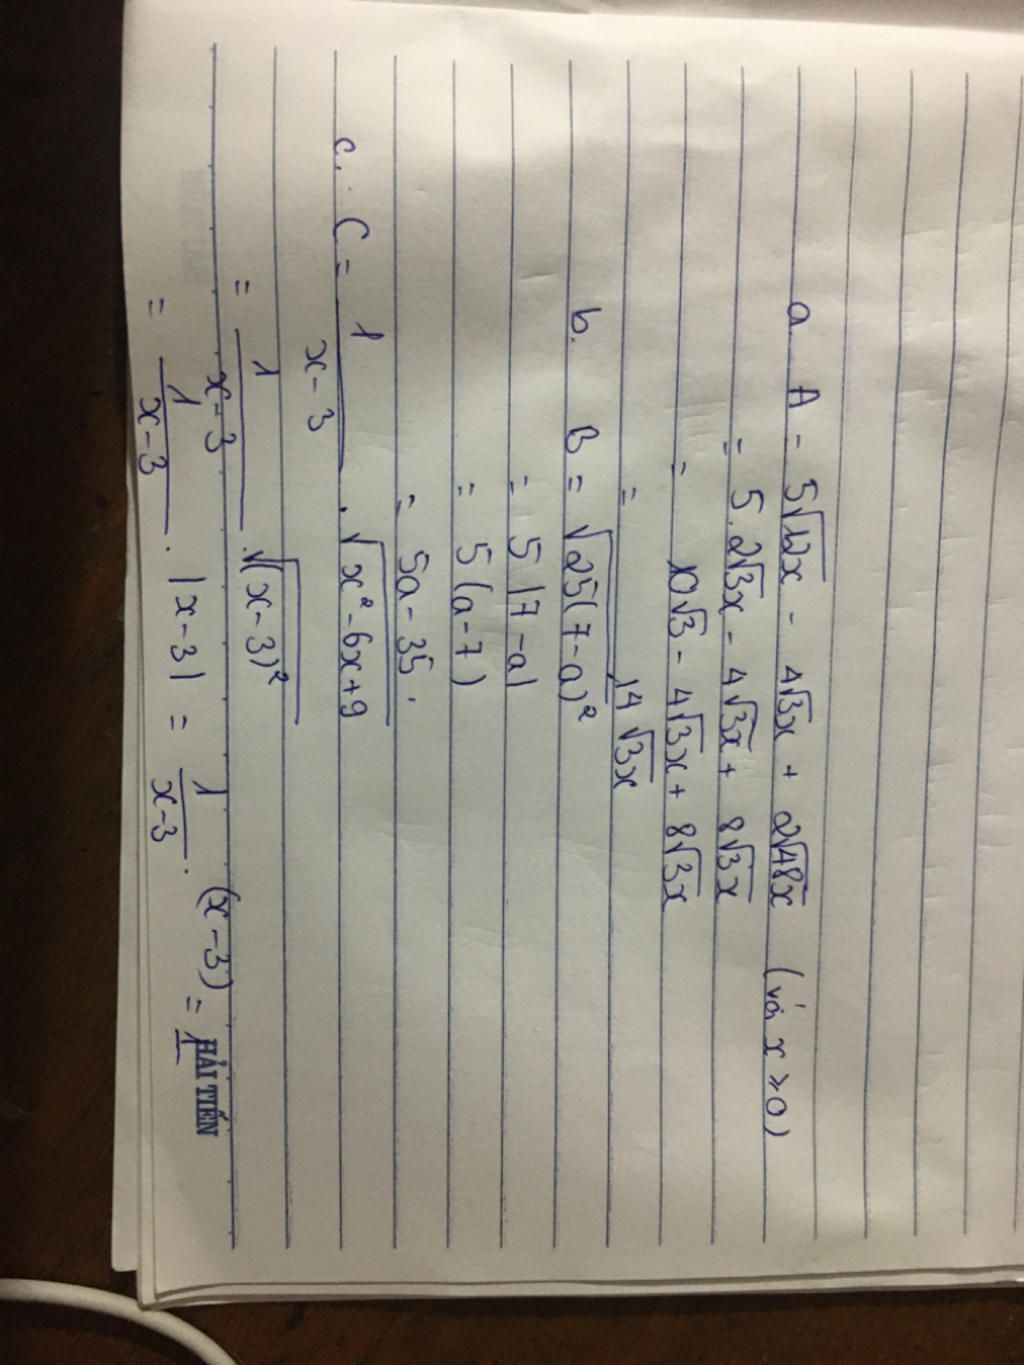 a. A = 5√12x - 4√3x + 2√48x (với x ⩾ 0)
= 5.2√3x - 4√3x + 8√3x
= 10√3 - 4√3x + 8√3x
= 14√3x
b. B = √25(7-a)²
= 5|7-a|
= 5(a-7)
= 5a - 35.
c. C = 1/(x-3) . √x²-6x+9
= 1/(x-3) . √(x-3)²
= 1/(x-3) . |x-3| = 1/(x-3) . (x-3) = 1
HẢI TIẾN